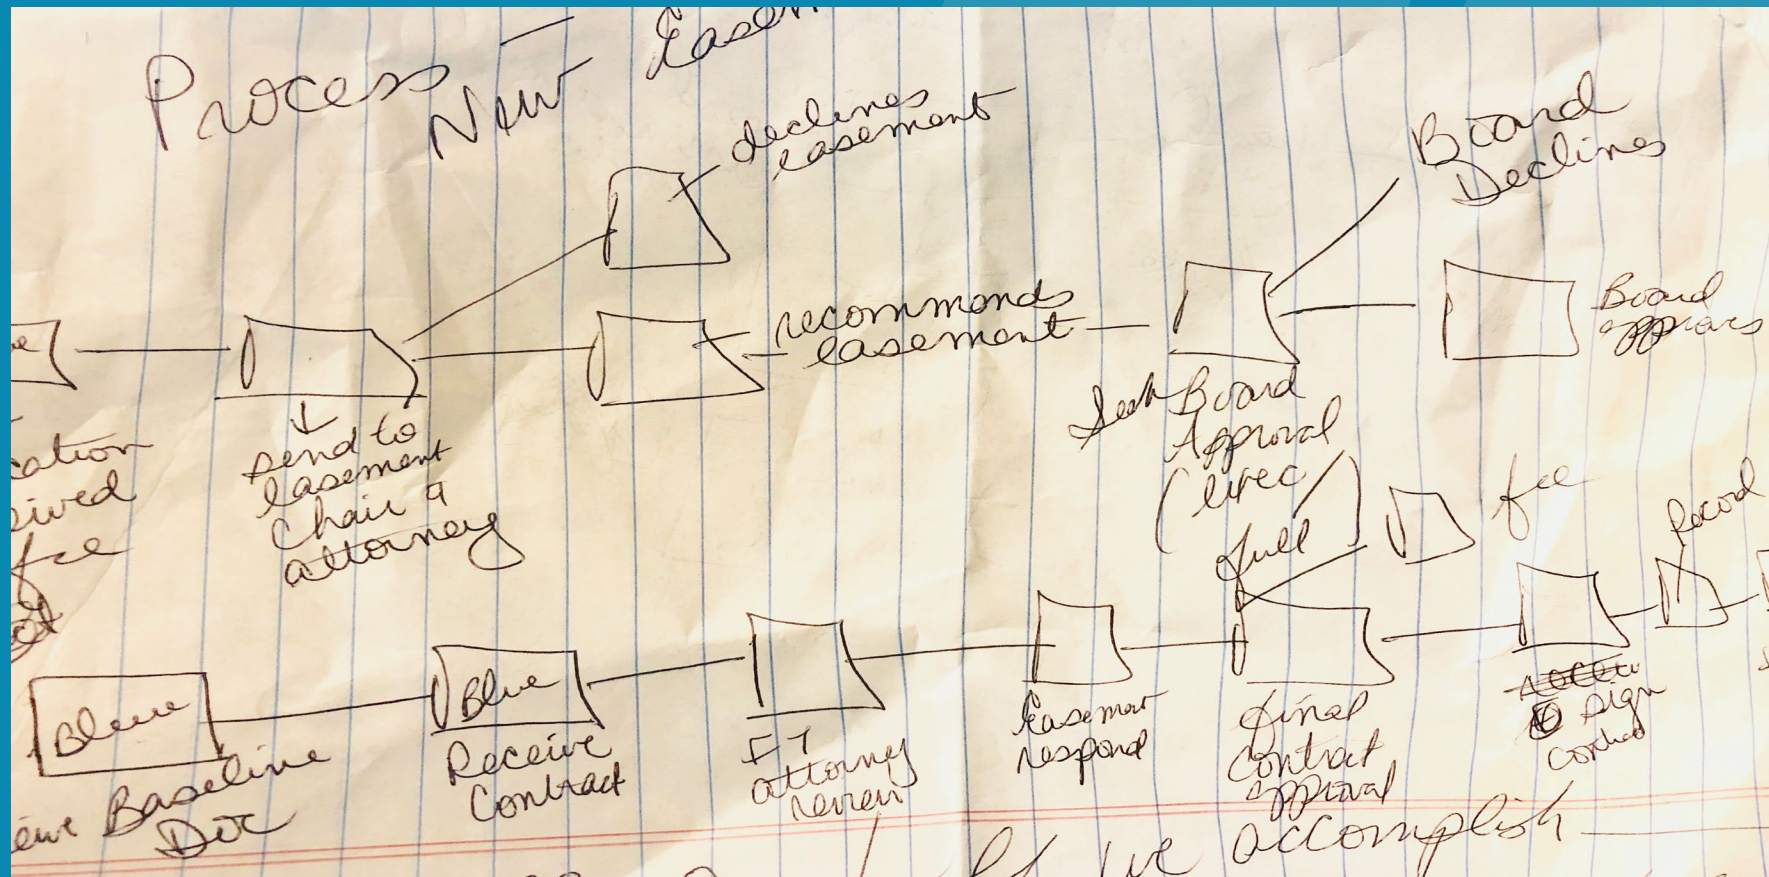 Process
New Easem
declines
easement
Board
Declines
recommends
easement
Board
approves
cation
eived
fee
send to
easement
Chair &
attorney
Seek Board
Approval
(exec/
full)
fee
Record
Blue
Blue
eive Baseline
Doc
Receive
Contract
attorney
review
Easement
respond
final
contract
approval
sign
If we accomplish